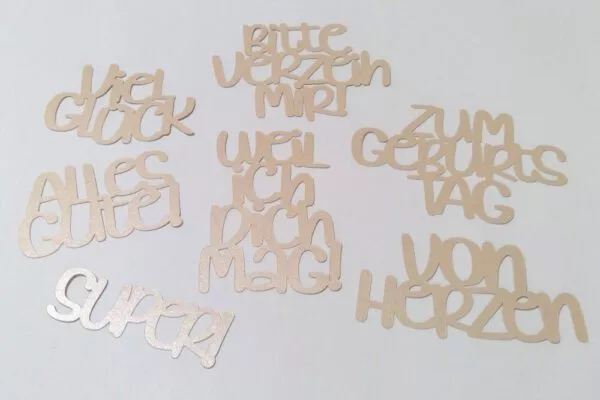 Viel
GLÜCK
Bitte
VERZEIH
MIR!
ZUM
GEBURTS
TAG
ALLES
GUTE!
WEIL
ICH
DICH
MAG!
SUPER!
VON
HERZEN